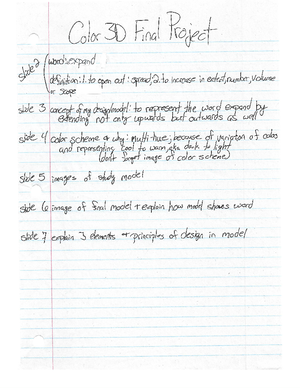 Color 3D Final Project
slide 2 word: expand
definition: 1. to open out: spread, 2. to increase in extent, number, volume
or scope
slide 3 concept of my design/model: to represent the word expand by
extending not only upwards but outwards as well
slide 4 color scheme & why: multi-hue; because of variation of colors
and representing cool to warm dark to light
(dont forget image of color scheme)
slide 5 images of study model
slide 6 image of final model + explain how model shows word
slide 7 explain 3 elements + principles of design in model